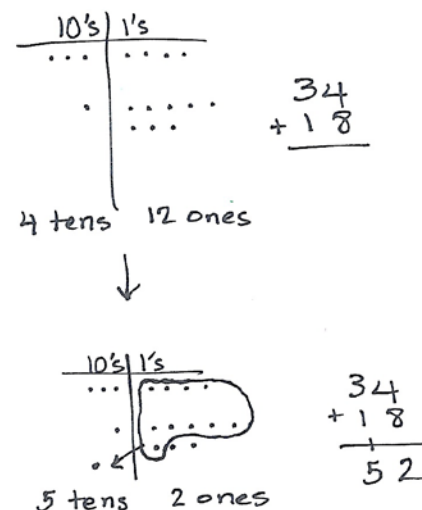 10's 1's
34
+ 18
4 tens 12 ones
10's 1's
34
+ 18
1
52
5 tens 2 ones